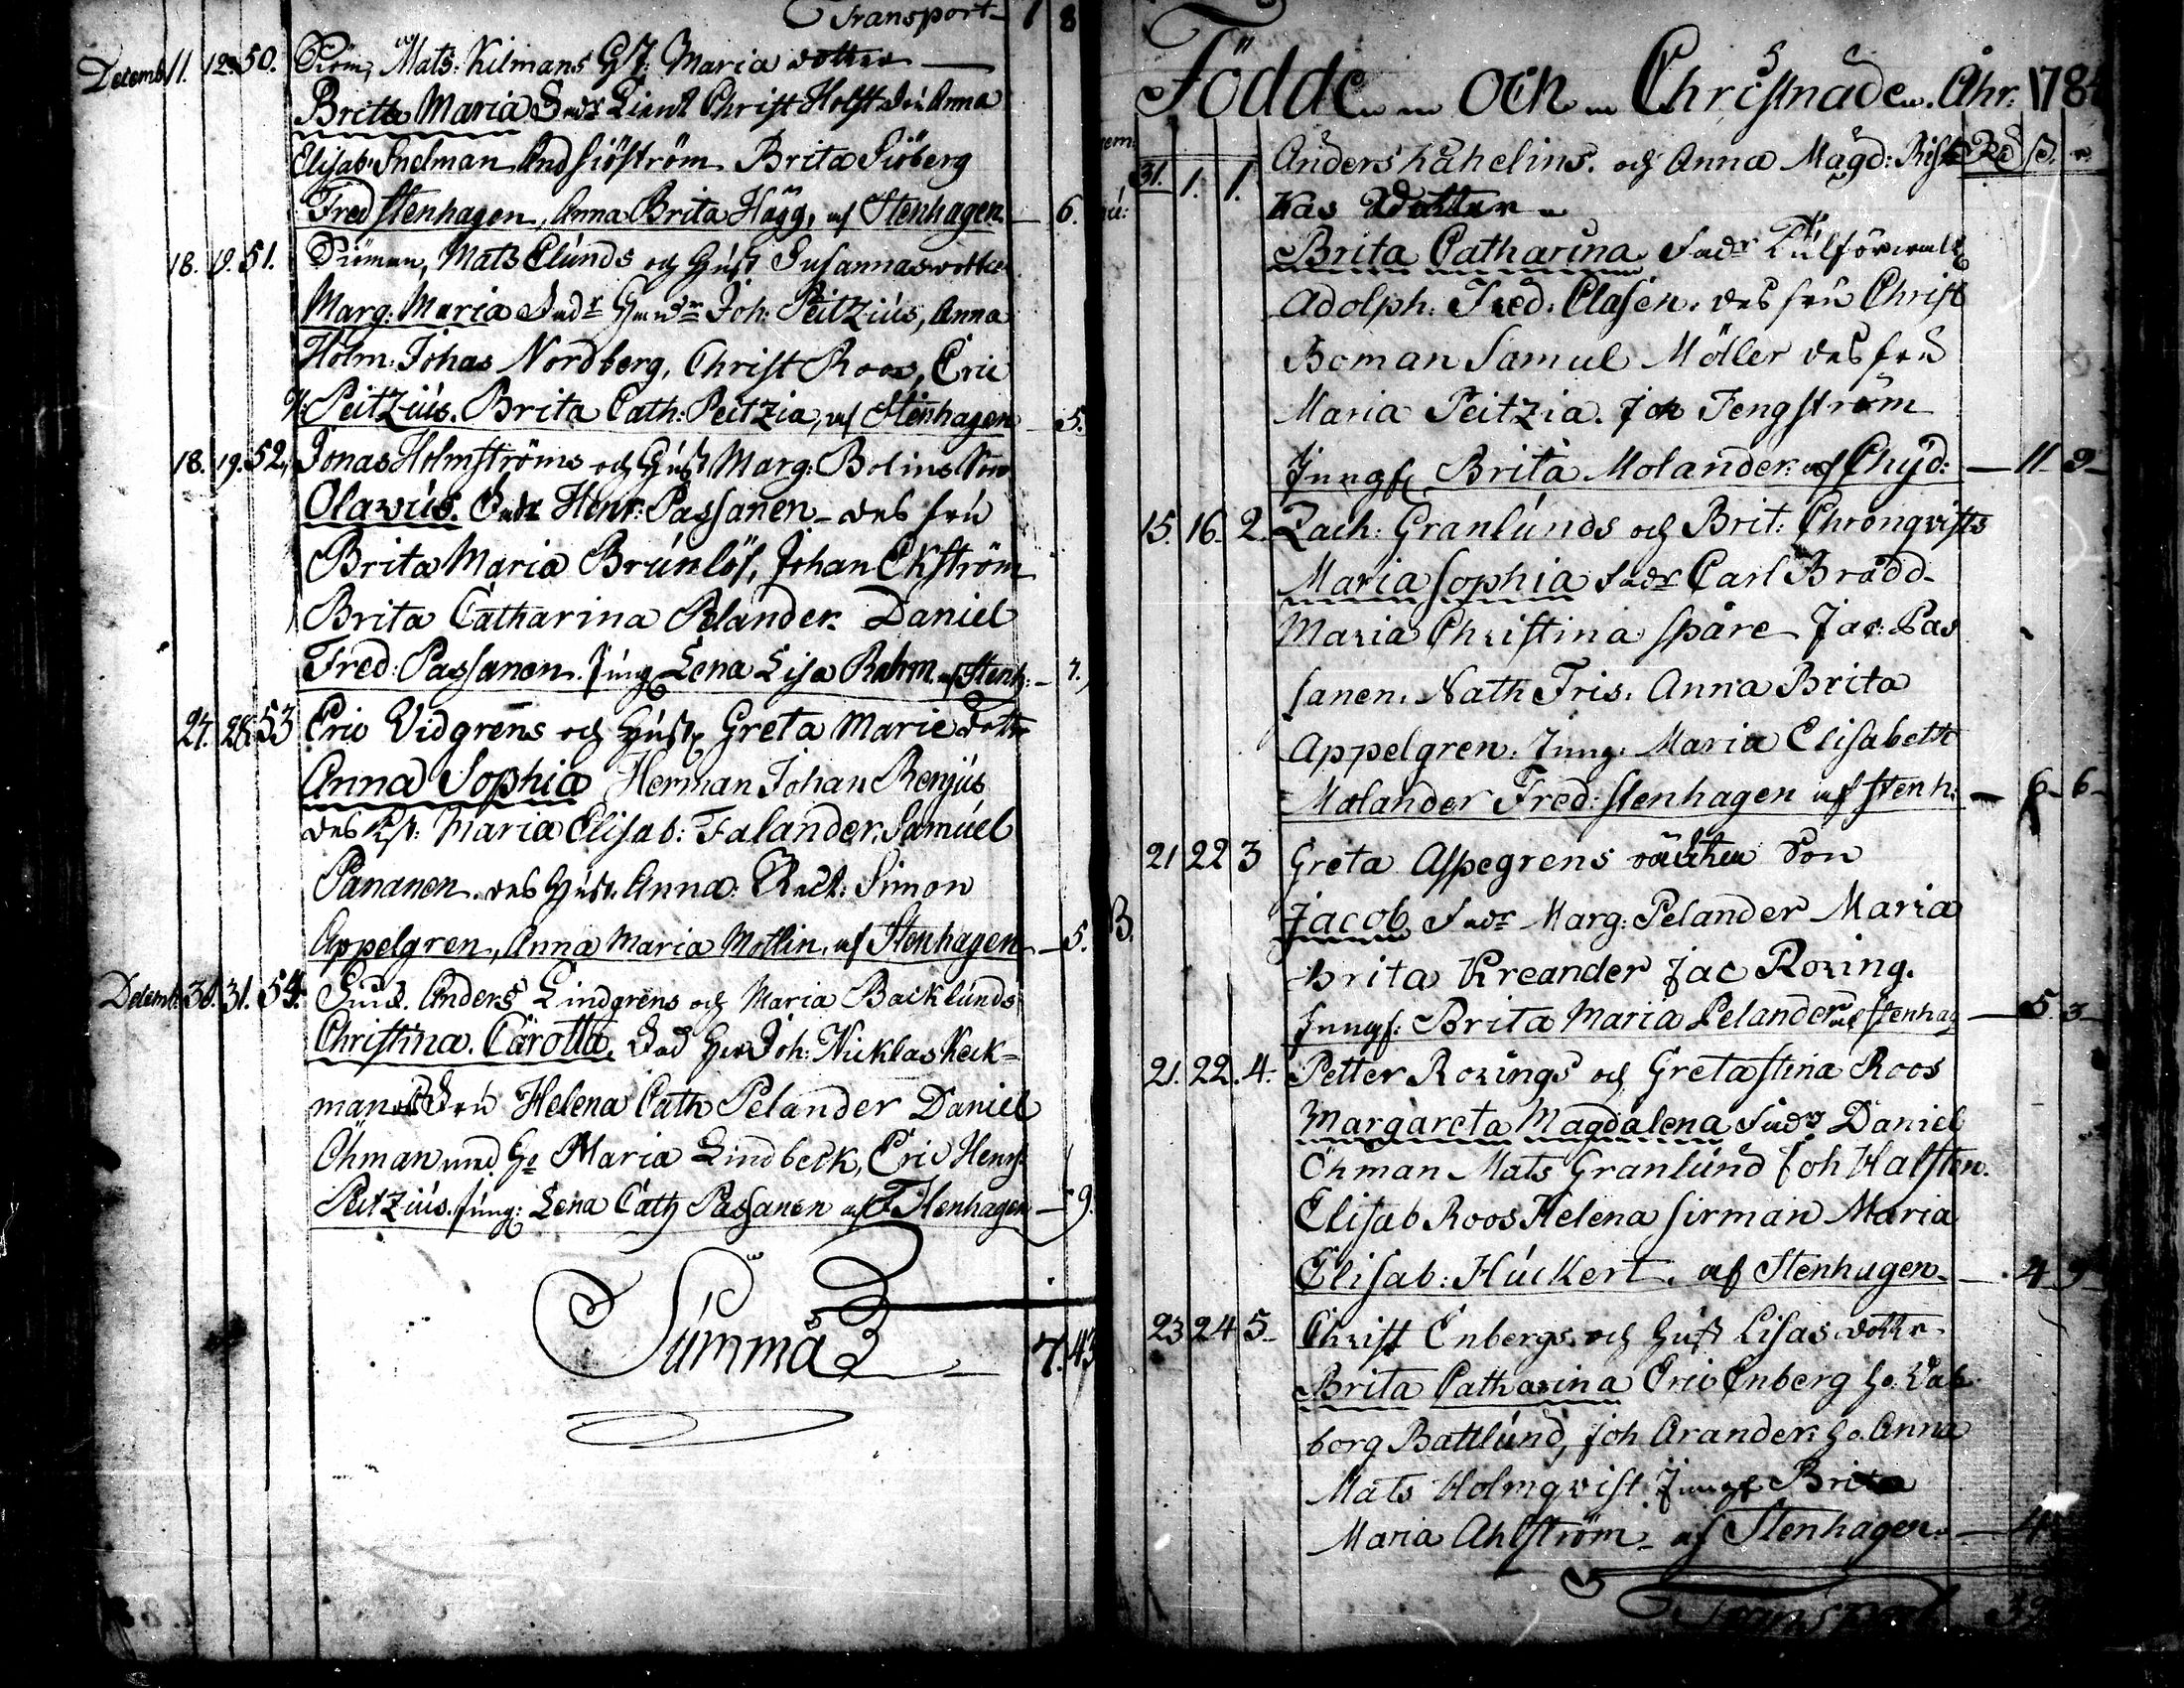 Transport 1 8
Decemb 11. 12. 50. Mats: Kilmans Hst: Maria dotter
Britta Maria Fadr Lieut Christ Holst Anna
Elisab: Snelman And Siöström Brita Siöberg
Fred Stenhagen, Anna Brita Hägg, af Stenhagen 6.
18. 19. 51. Mats Elunds och Hust Susannas dotter
Marg: Maria Fadr Joh: Peitzius, Anna
Holm: Johas Nordberg, Christ Roos, Eric
H: Peitzius. Brita Cath: Peitzia, af Stenhagen 5.
18. 19. 52. Jonas Holmströms och Hust Marg: Bolins Son
Olavus. Fadr Henr: Passanen des fru
Brita Maria Brunlöf, Johan Ekström
Brita Catharina Pelander. Daniel
Fred: Passanen. Jung Lena Lisa Rahm af Stenh: 7.
27. 28. 53 Eric Vidgrens och Hust Greta Marie dotter
Anna Sophia Herman Johan Renjus
des Hst: Maria Elisab: Falander. Samuel
Pananen. des Hust. Anna: Simon
Appelgren, Anna Maria Motlin, af Stenhagen 5.
Decemb 30. 31. 54. Anders Lindgrens och Maria Backlunds
Christina. Carotta. Fad Herr Joh: Nicklas Keck=
man fru Helena Cath Pelander Daniel
Öhman med Maria Lindbeck, Eric Henr:
Peitzius. Jung: Lena Cath Passanen af Stenhagen 9.
Summa 7. 43
Födde och Christnade Åhr: 178
31. 1. 1. Anders Kahelins. och Anna Magd: Risk
kas dotter
Brita Catharina Fadr Tullförvalt
Adolph: Fred: Clasen. des fru Christ
Boman Samuel Möller des fru
Maria Peitzia. Joh Tengström
Jungf Brita Molander. af Chyd: 11 9
15. 16. 2. Zach: Granlunds och Brit: Chronqvists
Maria Sophia Fadr Carl Brådd
Maria Christina Spåre Jac: Pas
sanen. Nath Fris. Anna Brita
Appelgren. Jung. Maria Elisabeth
Molander Fred: Stenhagen af Stenh. 6 6
21 22 3 Greta Aspegrens oäckta Son
Jacob Fadr Marg: Pelander Maria
Brita Kreander Jac Rozing.
Jungf: Brita Maria Pelander af Stenhag 5 3
21. 22. 4. Petter Rozings och Greta Stina Roos
Margareta Magdalena Fadr Daniel
Öhman Mats Granlund Joh Halsten.
Elisab Roos Helena Sirman Maria
Elisab: Huckert. af Stenhagen 4 9
23 24 5 Christ Enbergs. och Hust Lisas dotter
Brita Catharina Eric Enberg Val
borg Battlund, Joh Arander. Anna
Mats Holmqvist Jungf Brita
Maria Ahlström af Stenhagen. 4
Transport